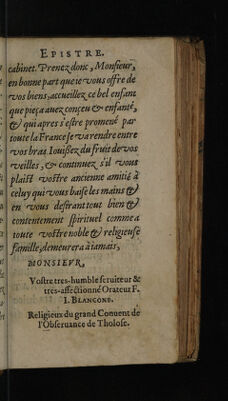 EPISTRE.
cabinet. Prenez donc, Monsieur,
en bonne part que ie vous offre de
vos biens, accueillez ce bel enfant
que pieça auez conçeu & enfanté,
& qui apres s'estre promené par
toute la France se va rendre entre
vos bras. Iouißez du fruit de vos
veilles, & continuez s'il vous
plaist vostre ancienne amitié à
celuy qui vous baise les mains &
en vous desirant tout bien &
contentement spirituel comme a
toute vostre noble & religieuse
famille, demeurera à iamais,
MONSIEVR,
Vostre tres-humble seruiteur &
tres-affectionné Orateur F.
I. BLANCONE.
Religieux du grand Conuent de
l'Obseruance de Tholose.